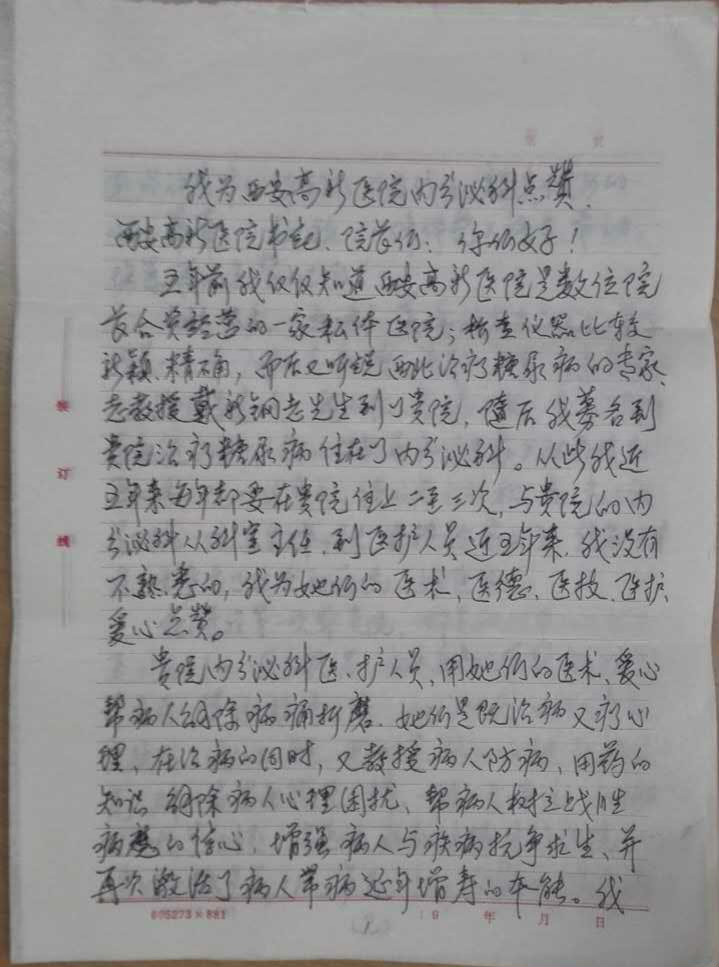 我为西安高新医院内分泌科点赞.
西安高新医院书记、院长们：你们好！
五年前我仅仅知道西安高新医院是数位院
长合资经营的一家私体医院；检查仪器比较
新颖、精确，而后又听说西北治疗糖尿病的专家、
老教授戴新钢老先生到了贵院，随后我慕名到
贵院治疗糖尿病住在了内分泌科。从此我近
五年来每年都要在贵院住上二至三次，与贵院的内
分泌科从科室主任、到医护人员近五年来，我没有
不熟悉的，我为她们的医术、医德、医技、医护、
爱心点赞。
贵院内分泌科医、护人员、用她们的医术、爱心
帮病人解除病痛折磨.她们是既治病又疗心
理、在治病的同时，又教授病人防病、用药的
知识 解除病人心理困扰、帮病人树立战胜
病魔的信心，增强病人与疾病抗争求生、并
再次激活了病人带病延年增寿的本能。我
装
订
线
605273×881
19 年 月 日